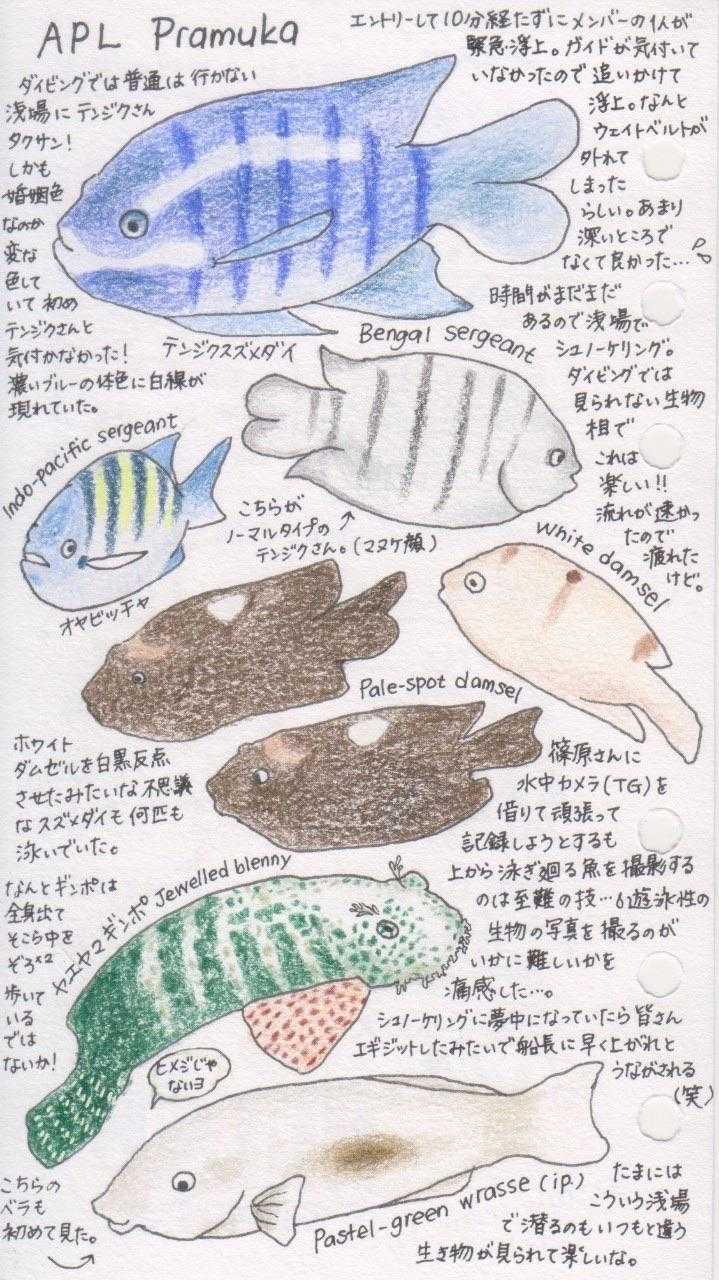 APL Pramuka
エントリーして10分経たずにメンバーの1人が
緊急浮上。ガイドが気付いて
いなかったので追いかけて
浮上。なんと
ウェイトベルトが
外れて
しまった
らしい。あまり
深いところで
なくて良かった…
ダイビングでは普通は行かない
浅場にテンジクさん
タクサン！
しかも
婚姻色
なのか
変な
色して
いて初め
テンジクさんと
気付かなかった！
濃いブルーの体色に白線が
現れていた。
テンジクスズメダイ
Bengal sergeant
時間がまだまだ
あるので浅場で
シュノーケリング。
ダイビングでは
見られない生物
相で
これは
楽しい!!
流れが速かっ
たので
疲れた
けど。
Indo-pacific sergeant
オヤビッチャ
こちらが
ノーマルタイプの
テンジクさん。(マヌケ顔)
White damsel
Pale-spot damsel
ホワイト
ダムゼルを白黒反点
させたみたいな不思議
なスズメダイも何匹も
泳いでいた。
篠原さんに
水中カメラ(TG)を
借りて頑張って
記録しようとするも
上から泳ぎ廻る魚を撮影する
のは至難の技…遊泳性の
生物の写真を撮るのが
いかに難しいかを
痛感した…。
ヤエヤマギンポ Jewelled blenny
なんとギンポは
全身出て
そこら中を
ぞろ×2
歩いて
いる
では
ないか！
シュノーケリングに夢中になっていたら皆さん
エギジットしたみたいで船長に早く上がれと
うながされる
(笑)
ヒメジじゃ
ないヨ
こちらの
ベラも
初めて見た。
Pastel-green wrasse (ip.)
たまには
こういう浅場
で潜るのもいつもと違う
生き物が見られて楽しいな。